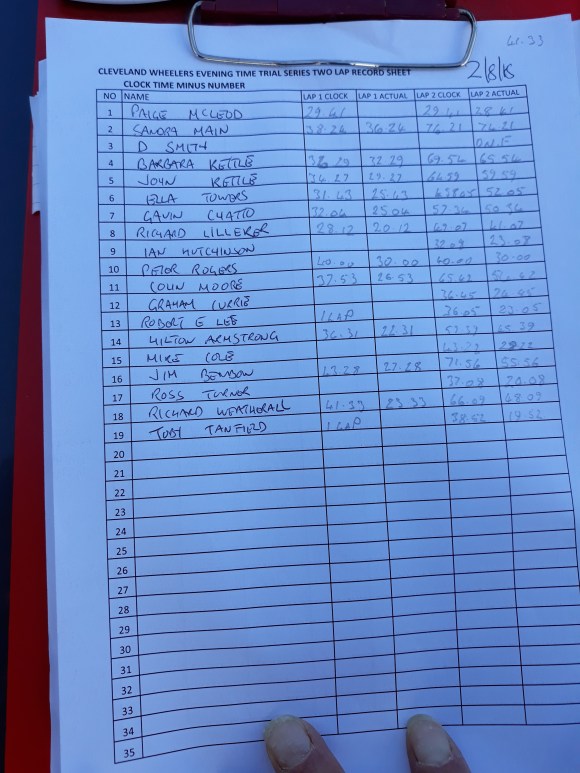 41.33
CLEVELAND WHEELERS EVENING TIME TRIAL SERIES TWO LAP RECORD SHEET 2/8/18
CLOCK TIME MINUS NUMBER
NO NAME LAP 1 CLOCK LAP 1 ACTUAL LAP 2 CLOCK LAP 2 ACTUAL
1 PAIGE MCLEOD 29.41 29.41 28.41
2 SANDRA MAIN 38.24 36.24 76.21 74.21
3 D SMITH D.N.F
4 BARBARA KETTLE 36.29 32.29 69.54 65.54
5 JOHN KETTLE 34.27 29.27 64.59 59.59
6 ELLA TOWERS 31.43 25.43 52.05
7 GAVIN CHATTO 32.04 25.04 57.36 50.36
8 RICHARD LILLEKER 28.12 20.12 41.07
9 IAN HUTCHINSON 32.08 23.08
10 PETER ROGERS 40.00 30.00 40.00 30.00
11 COLIN MOORE 37.53 26.53
12 GRAHAM CURRIE
13 ROBERT E LEE 1 LAP 36.05 23.05
14 HILTON ARMSTRONG 36.31 22.31
15 MIKE COLE
16 JIM BENSON 43.28 27.28 71.56 55.56
17 ROSS TURNER 37.08 20.08
18 RICHARD WEATHERALL 41.33 23.33 66.09 48.09
19 TOBY TANFIELD 1 LAP 38.52 19.52
20
21
22
23
24
25
26
27
28
29
30
31
32
33
34
35